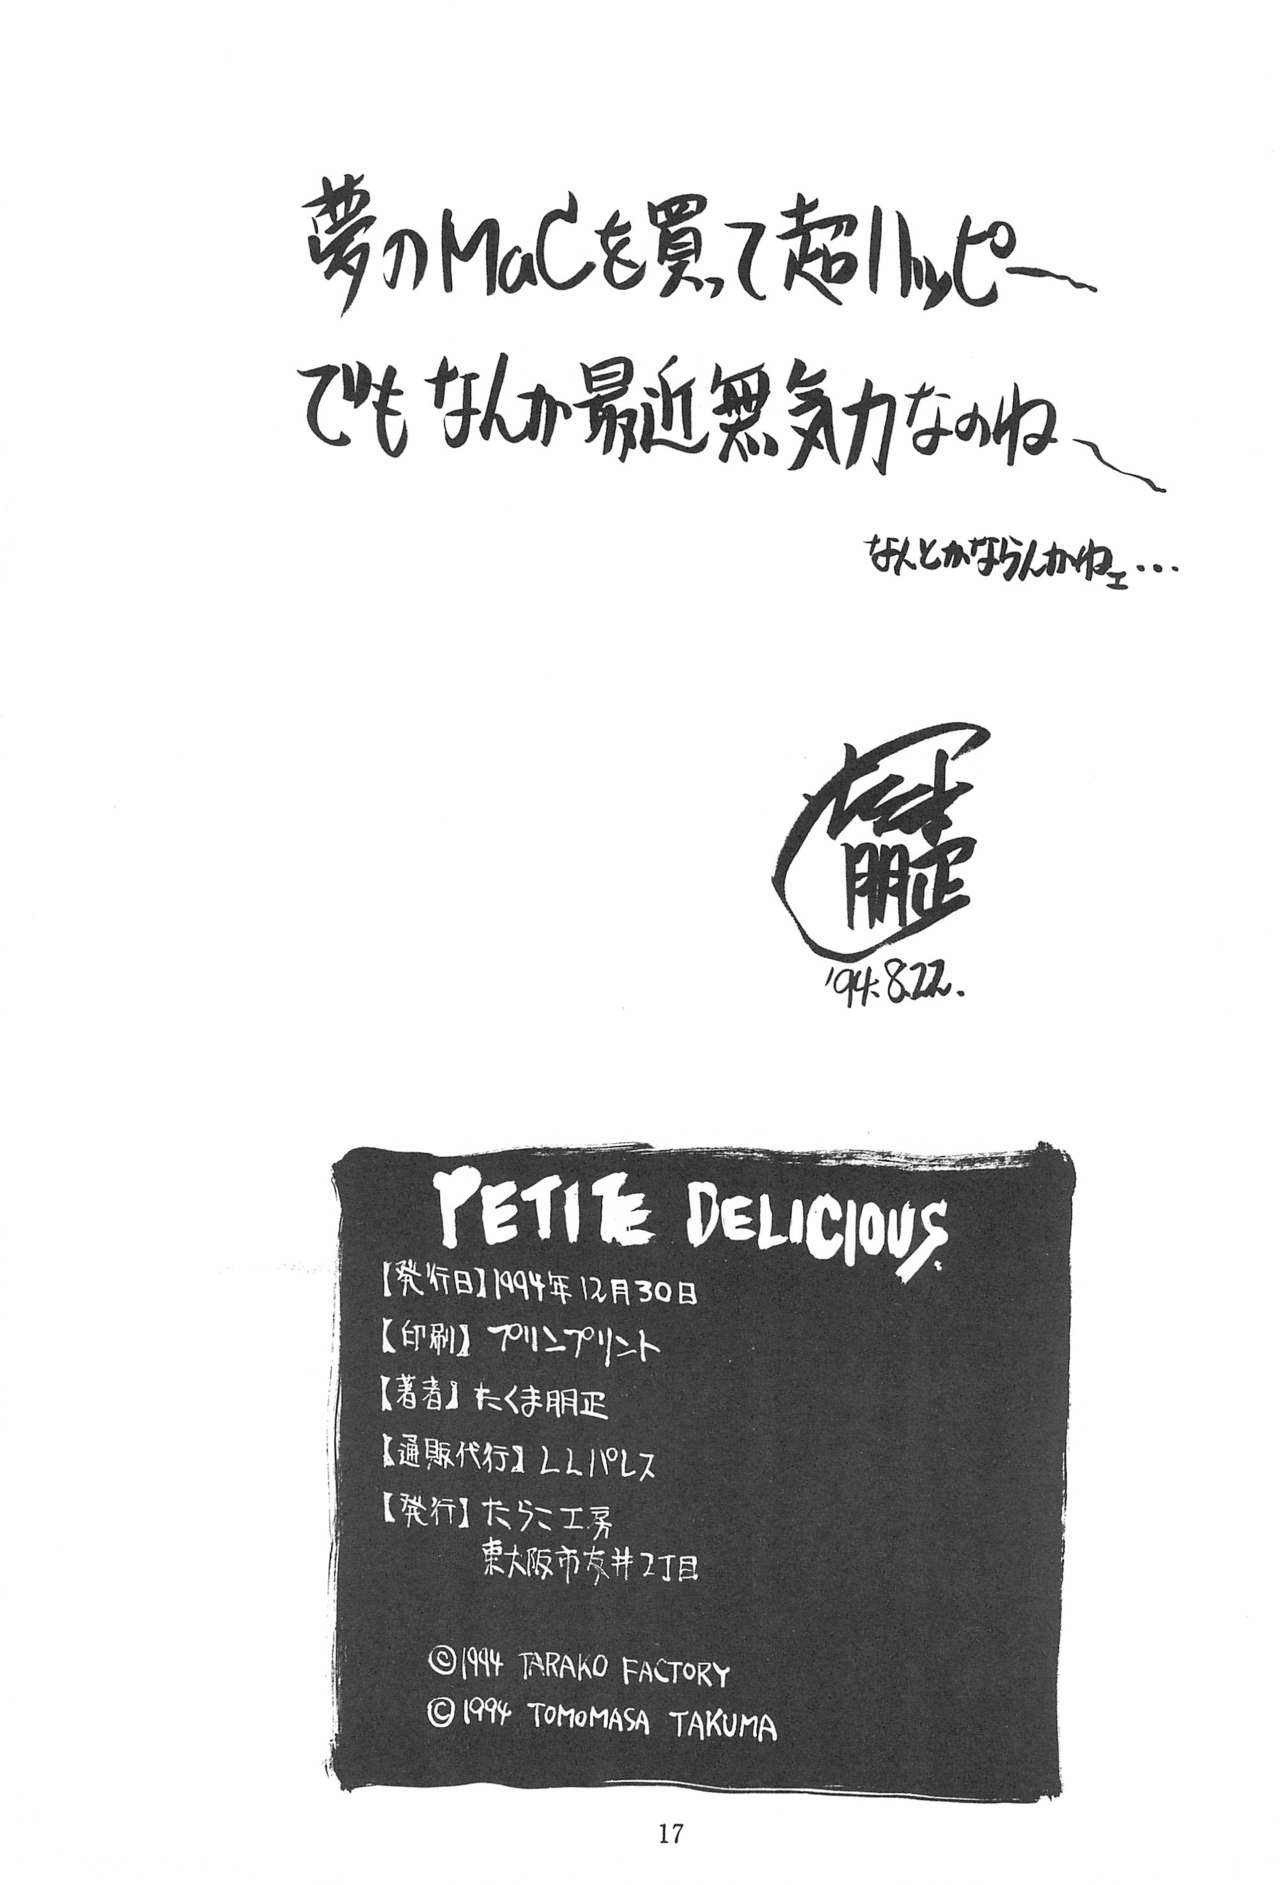 夢のMacを買って超ハッピー〜
でもなんか最近無気力なのね〜
なんとかならんかねェ...
たくま
朋正
'94.8.22.
PETITE DELICIOUS
【発行日】1994年12月30日
【印刷】プリンプリント
【著者】たくま朋正
【通販代行】LLパレス
【発行】たらこ工房
東大阪市友井2丁目
©1994 TARAKO FACTORY
©1994 TOMOMASA TAKUMA
17